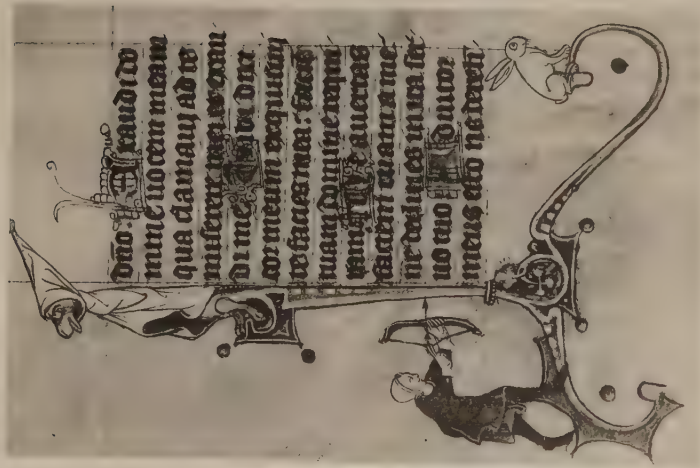 dño. Exaudi do
mine uocem meam
qua clamaui ad te
miserere mei et exau
di me Tibi dixit
cor meum exquisiuit
te facies mea: faciē
tuam domine requi
ram Ne auertas
faciem tuam a me
ne declines in ira a ser
uo tuo Adiutor
meus esto ne dereli